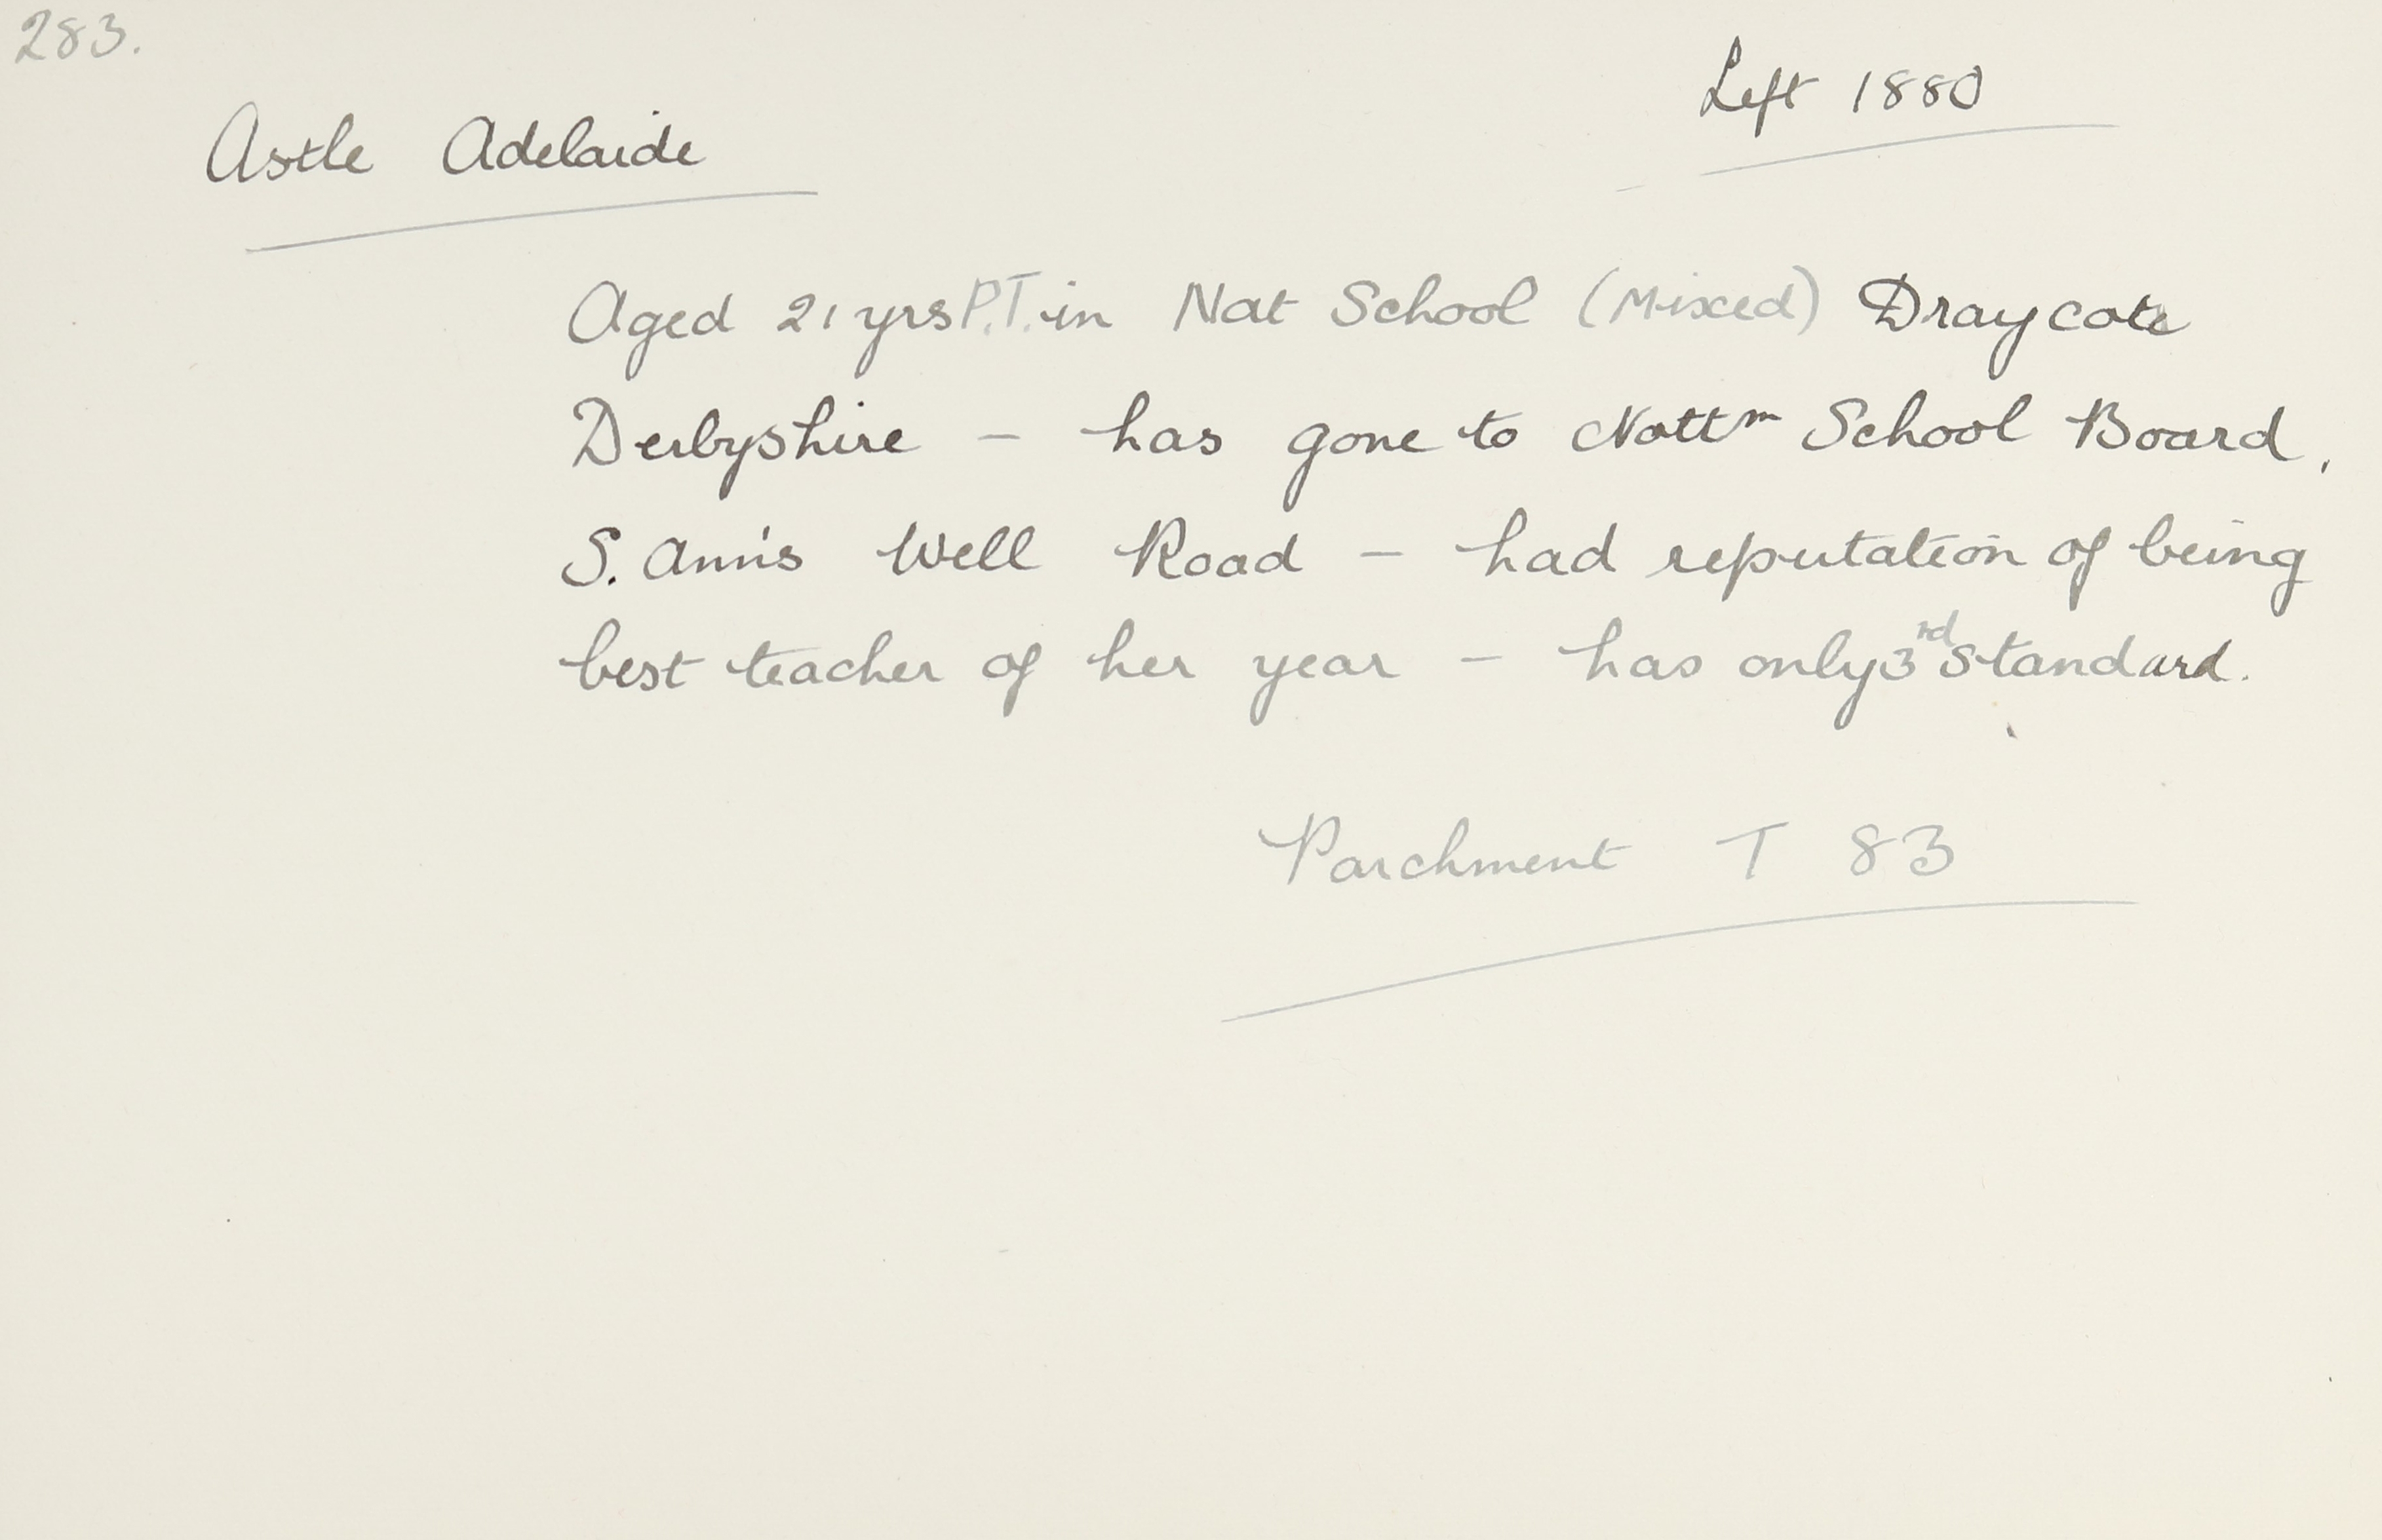 283.
Left 1880
Astle Adelaide
Aged 21 yrs P.T. in Nat School (Mixed) Draycote
Derbyshire - has gone to Nottm School Board,
S. Ann's Well Road - had reputation of being
best teacher of her year - has only 3rd Standard.
Parchment T 83